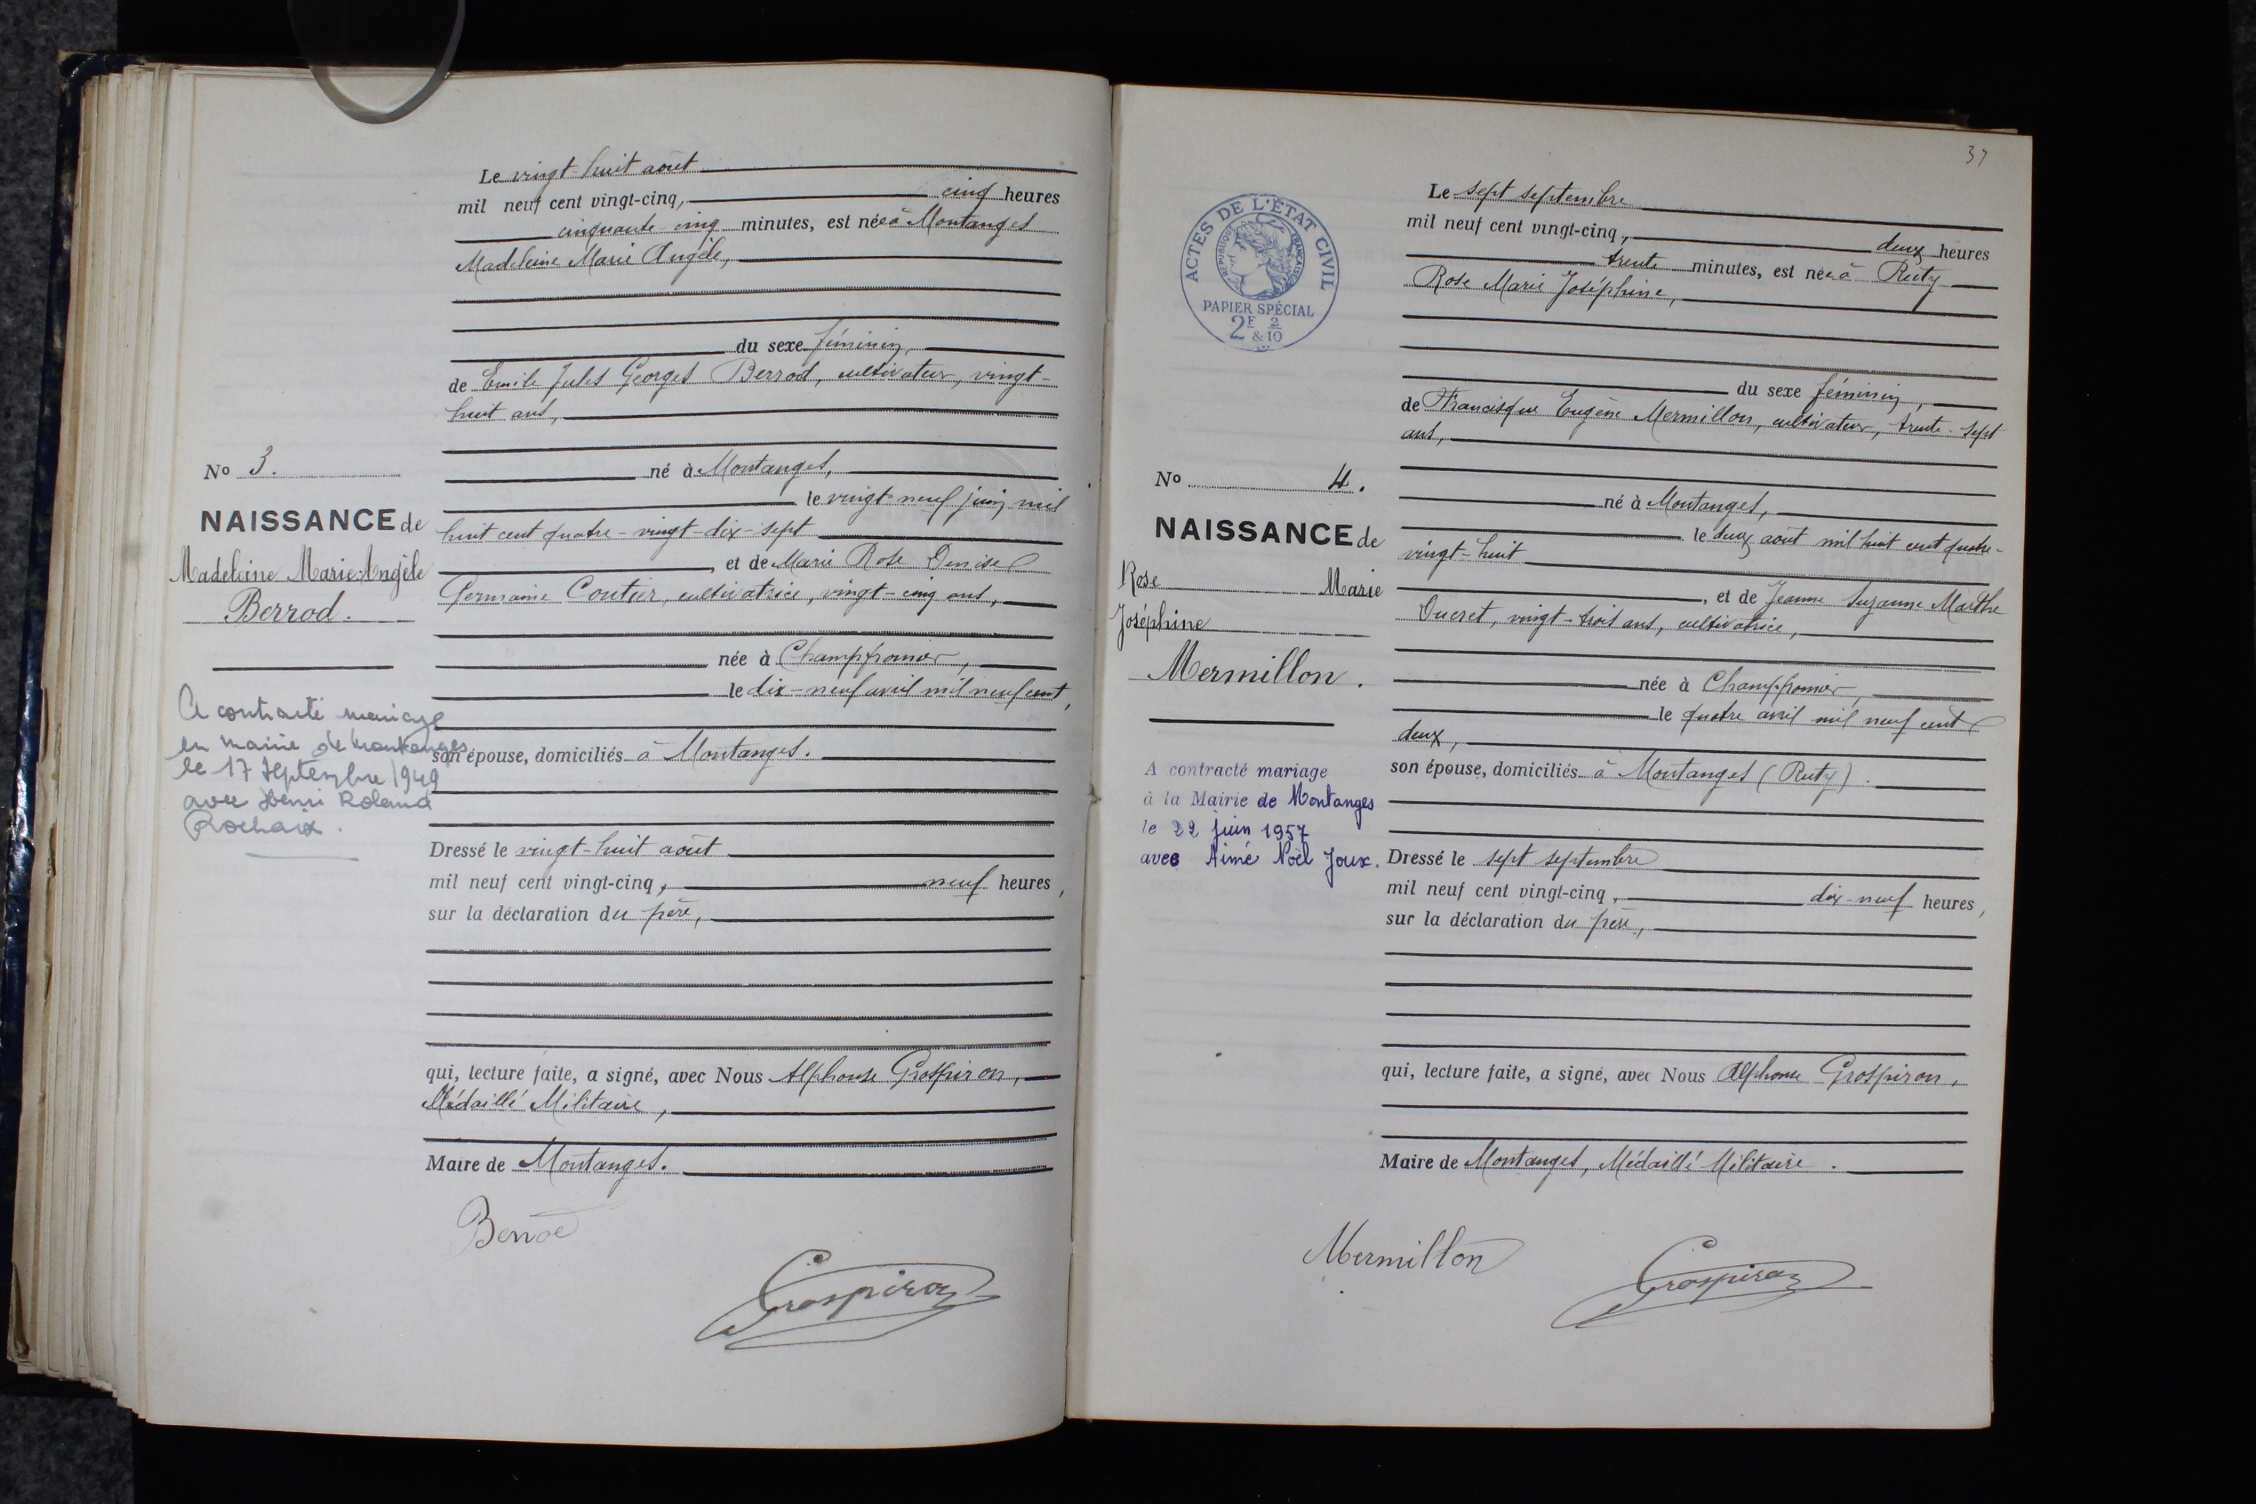 Le vingt-huit août
mil neuf cent vingt-cinq, cinq heures
cinquante-cinq minutes, est née à Montanges
Madeleine Marie Angèle,
du sexe féminin,
de Emile Jules Georges Berrod, cultivateur, vingt-
huit ans,
né à Montanges,
le vingt-neuf juin mil
huit cent quatre-vingt-dix-sept
, et de Marie Rose Denise
Germaine Coutier, cultivatrice, vingt-cinq ans,
née à Champfromier,
le dix-neuf avril mil neuf cent,
son épouse, domiciliés à Montanges.
Dressé le vingt-huit août
mil neuf cent vingt-cinq, neuf heures,
sur la déclaration du père,
qui, lecture faite, a signé, avec Nous Alphonse Grospiron,
Médaillé Militaire,
Maire de Montanges.
Berrod
Grospiron
No 3.
NAISSANCE de
Madeleine Marie Angèle
Berrod.
A contracté mariage
en mairie de Montanges
le 17 Septembre 1949
avec Henri Roland
Rochaix.
37
ACTES DE L'ÉTAT CIVIL
RÉPUBLIQUE FRANÇAISE
PAPIER SPÉCIAL
2F & 2/10
Le sept septembre
mil neuf cent vingt-cinq, deux heures
trente minutes, est née à Ruty
Rose Marie Joséphine,
du sexe féminin,
de Francisque Eugène Mermillon, cultivateur, trente-sept
ans,
né à Montanges,
le deux août mil huit cent quatre-
vingt-huit
, et de Jeanne Suzanne Marthe
Ducret, vingt-trois ans, cultivatrice,
née à Champfromier,
le quatre avril mil neuf cent
deux,
son épouse, domiciliés à Montanges (Ruty).
Dressé le sept septembre
mil neuf cent vingt-cinq, dix-neuf heures,
sur la déclaration du père,
qui, lecture faite, a signé, avec Nous Alphonse Grospiron,
Maire de Montanges, Médaillé Militaire.
Mermillon
Grospiron
No 4.
NAISSANCE de
Rose Marie
Joséphine
Mermillon.
A contracté mariage
à la Mairie de Montanges
le 22 juin 1957
avec Aimé Noël Joux.